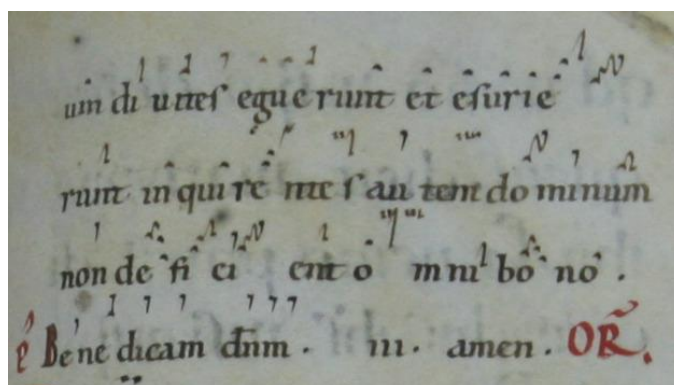 um di uites eguerunt et esurie
runt in qui ren tes autem dominum
non de fi ci ent o mni bo no .
Be ne dicam dnm . in . amen . OR.